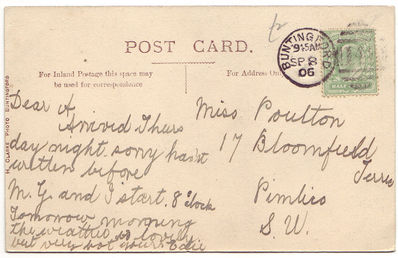 POST CARD.
For Inland Postage this space may
be used for correspondence
For Address On
BUNTINGFORD
9 15 AM
SP 8
06
HALF
H. CLARK PHOTO BUNTINGFORD
Dear A
Arrived Thurs
day night sorry hasnt
written before
M. G. and I start 8 o'clock
Tomorrow morning
the weather is lovely
but very hot yours Edie
Miss Poulton
17 Bloomfield
Terrce
Pimlico
S. W.